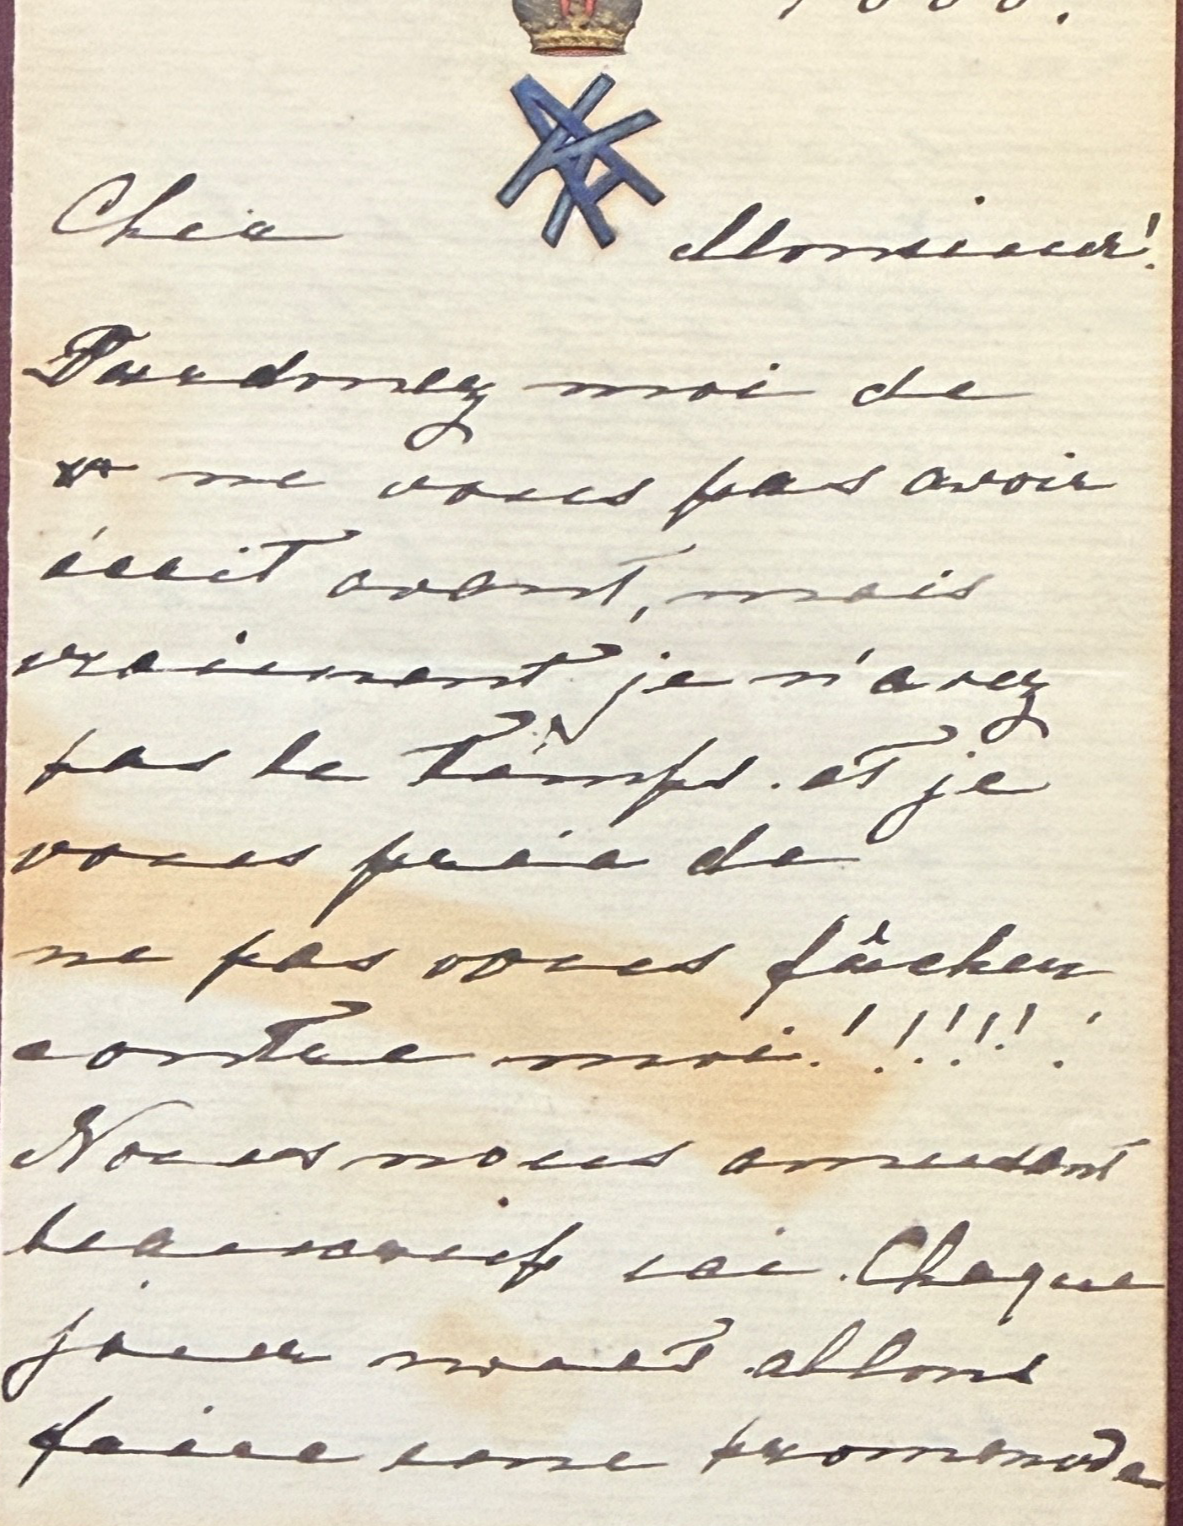 Cher Monsieur!
Pardonez moi de
ne vous pas avoir
écrit avant, mais
vraiment je n'avez
pas le temps. et je
vous prie de
ne pas vous fâcher
contre moi!!!!!!
Nous nous amusont
beaucoup ici. Chaque
jour nous allons
faire une promenade